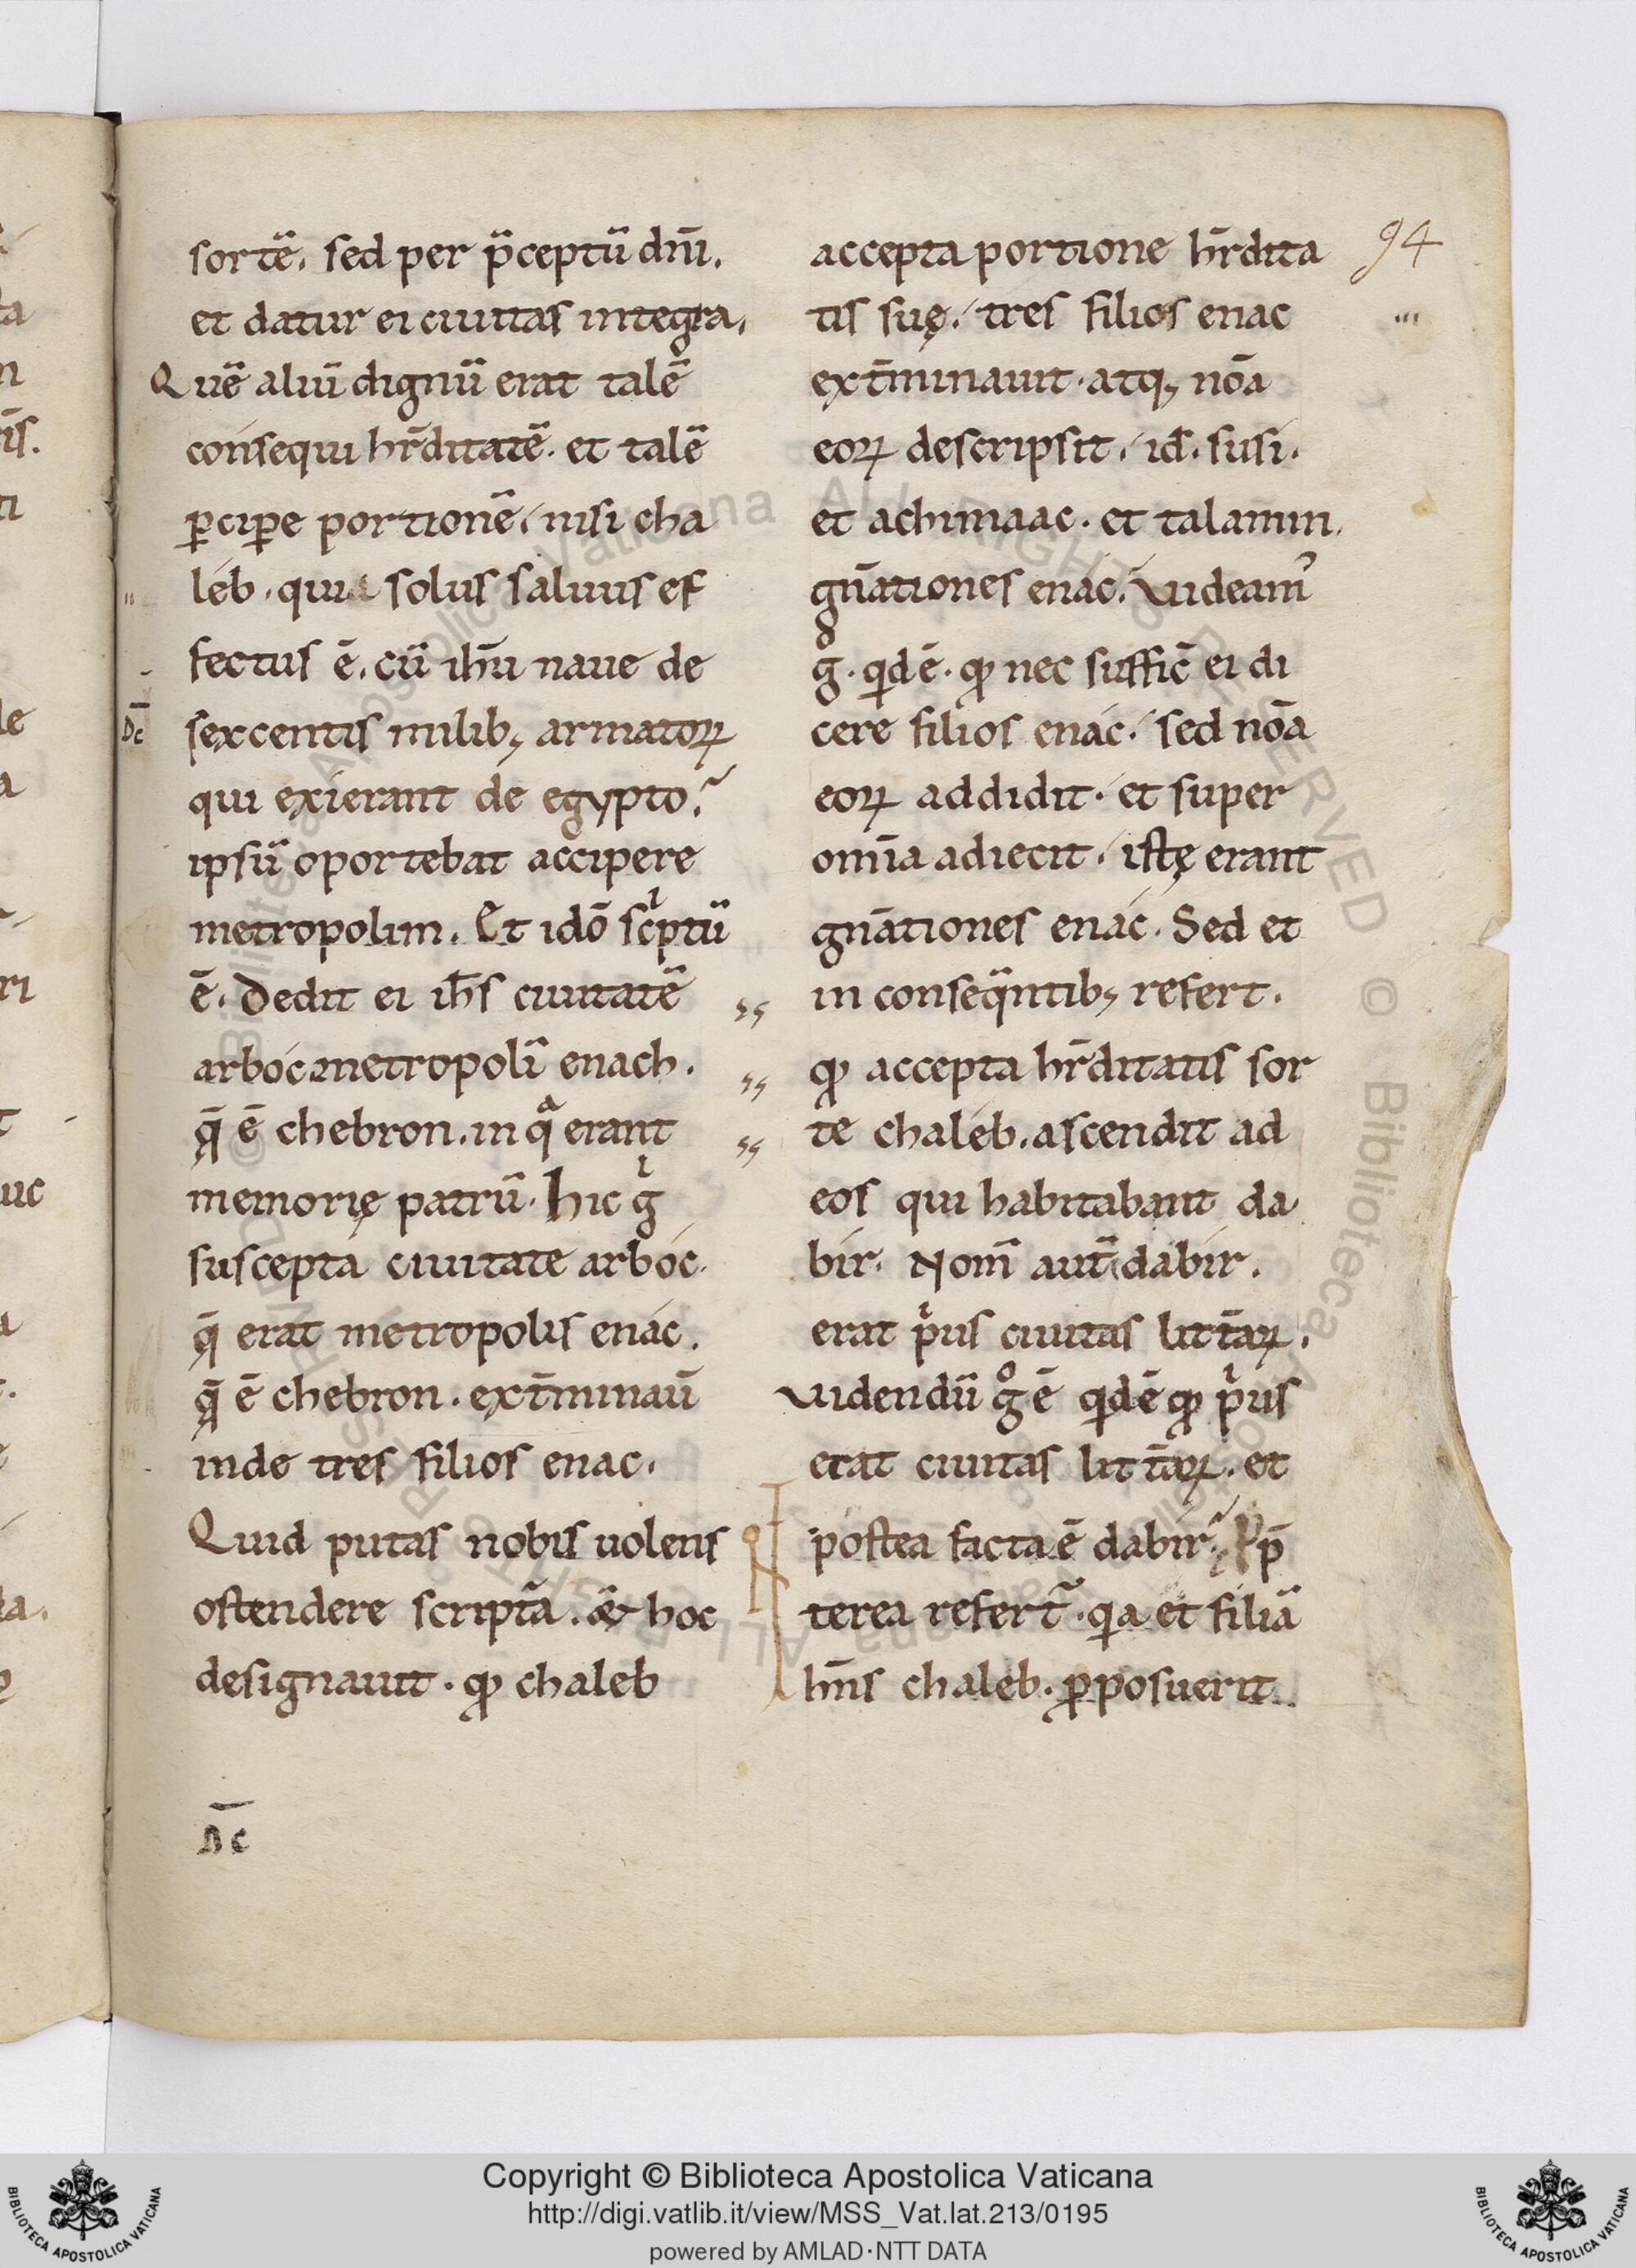 sortē. sed per p̄ceptū dnī.
et datur ei ciuitas integra.
Quē aliū dignū erat talē
consequi hr̄ditatē. et talē
ꝑciꝑe portionē. nisi cha
leb. quia solus saluus ef
fectus ē. cū ihū naue de
sexcentis milib; armatoꝝ
qui exierant de egypto.
ipsū oportebat accipere
metropolim. Et idō scptū
ē. Dedit ei ihs̄ ciuitatē
arboc metropolī enach.
q̄ ē chebron. in qa erant
memorię patrū. hic gi
suscepta ciuitate arboc.
q̄ erat metropolis enac.
q̄ ē chebron. ext̄minaū
inde tres filios enac.
Quid putas nobis uolens
ostendere scriptā. & hoc
designauit. qđ chaleb
D̄c
D̄c
accepta portione hr̄dita
tis suę. tres filios enac
ext̄minauit. atq; nōa
eoꝝ descripsit. id. susi.
et achimaac. et talamin.
gn̄ationes enac. Videam᾽
go. qd ē. qđ nec sufficē ei di
cere filios enac. sed nōa
eoꝝ addidit. et super
omīa adiecit. istę erant
gn̄ationes enac. Sed et
in conseq̄ntib; refert.
qđ accepta hr̄ditatis sor
te chaleb. ascendit ad
eos qui habitabant da
bir. Nom̄ aut̄ dabir.
erat pius ciuitas litt̄aꝝ.
Videndū go ē qd ē qđ pius
erat ciuitas litt̄aꝝ. et
postea facta ē dabir. Pp̄
terea refert̄. qia et filiā
hn̄s chaleb. ꝓposuerit.
94
Copyright © Biblioteca Apostolica Vaticana
http://digi.vatlib.it/view/MSS_Vat.lat.213/0195
powered by AMLAD·NTT DATA
BIBLIOTECA APOSTOLICA VATICANA
BIBLIOTECA APOSTOLICA VATICANA